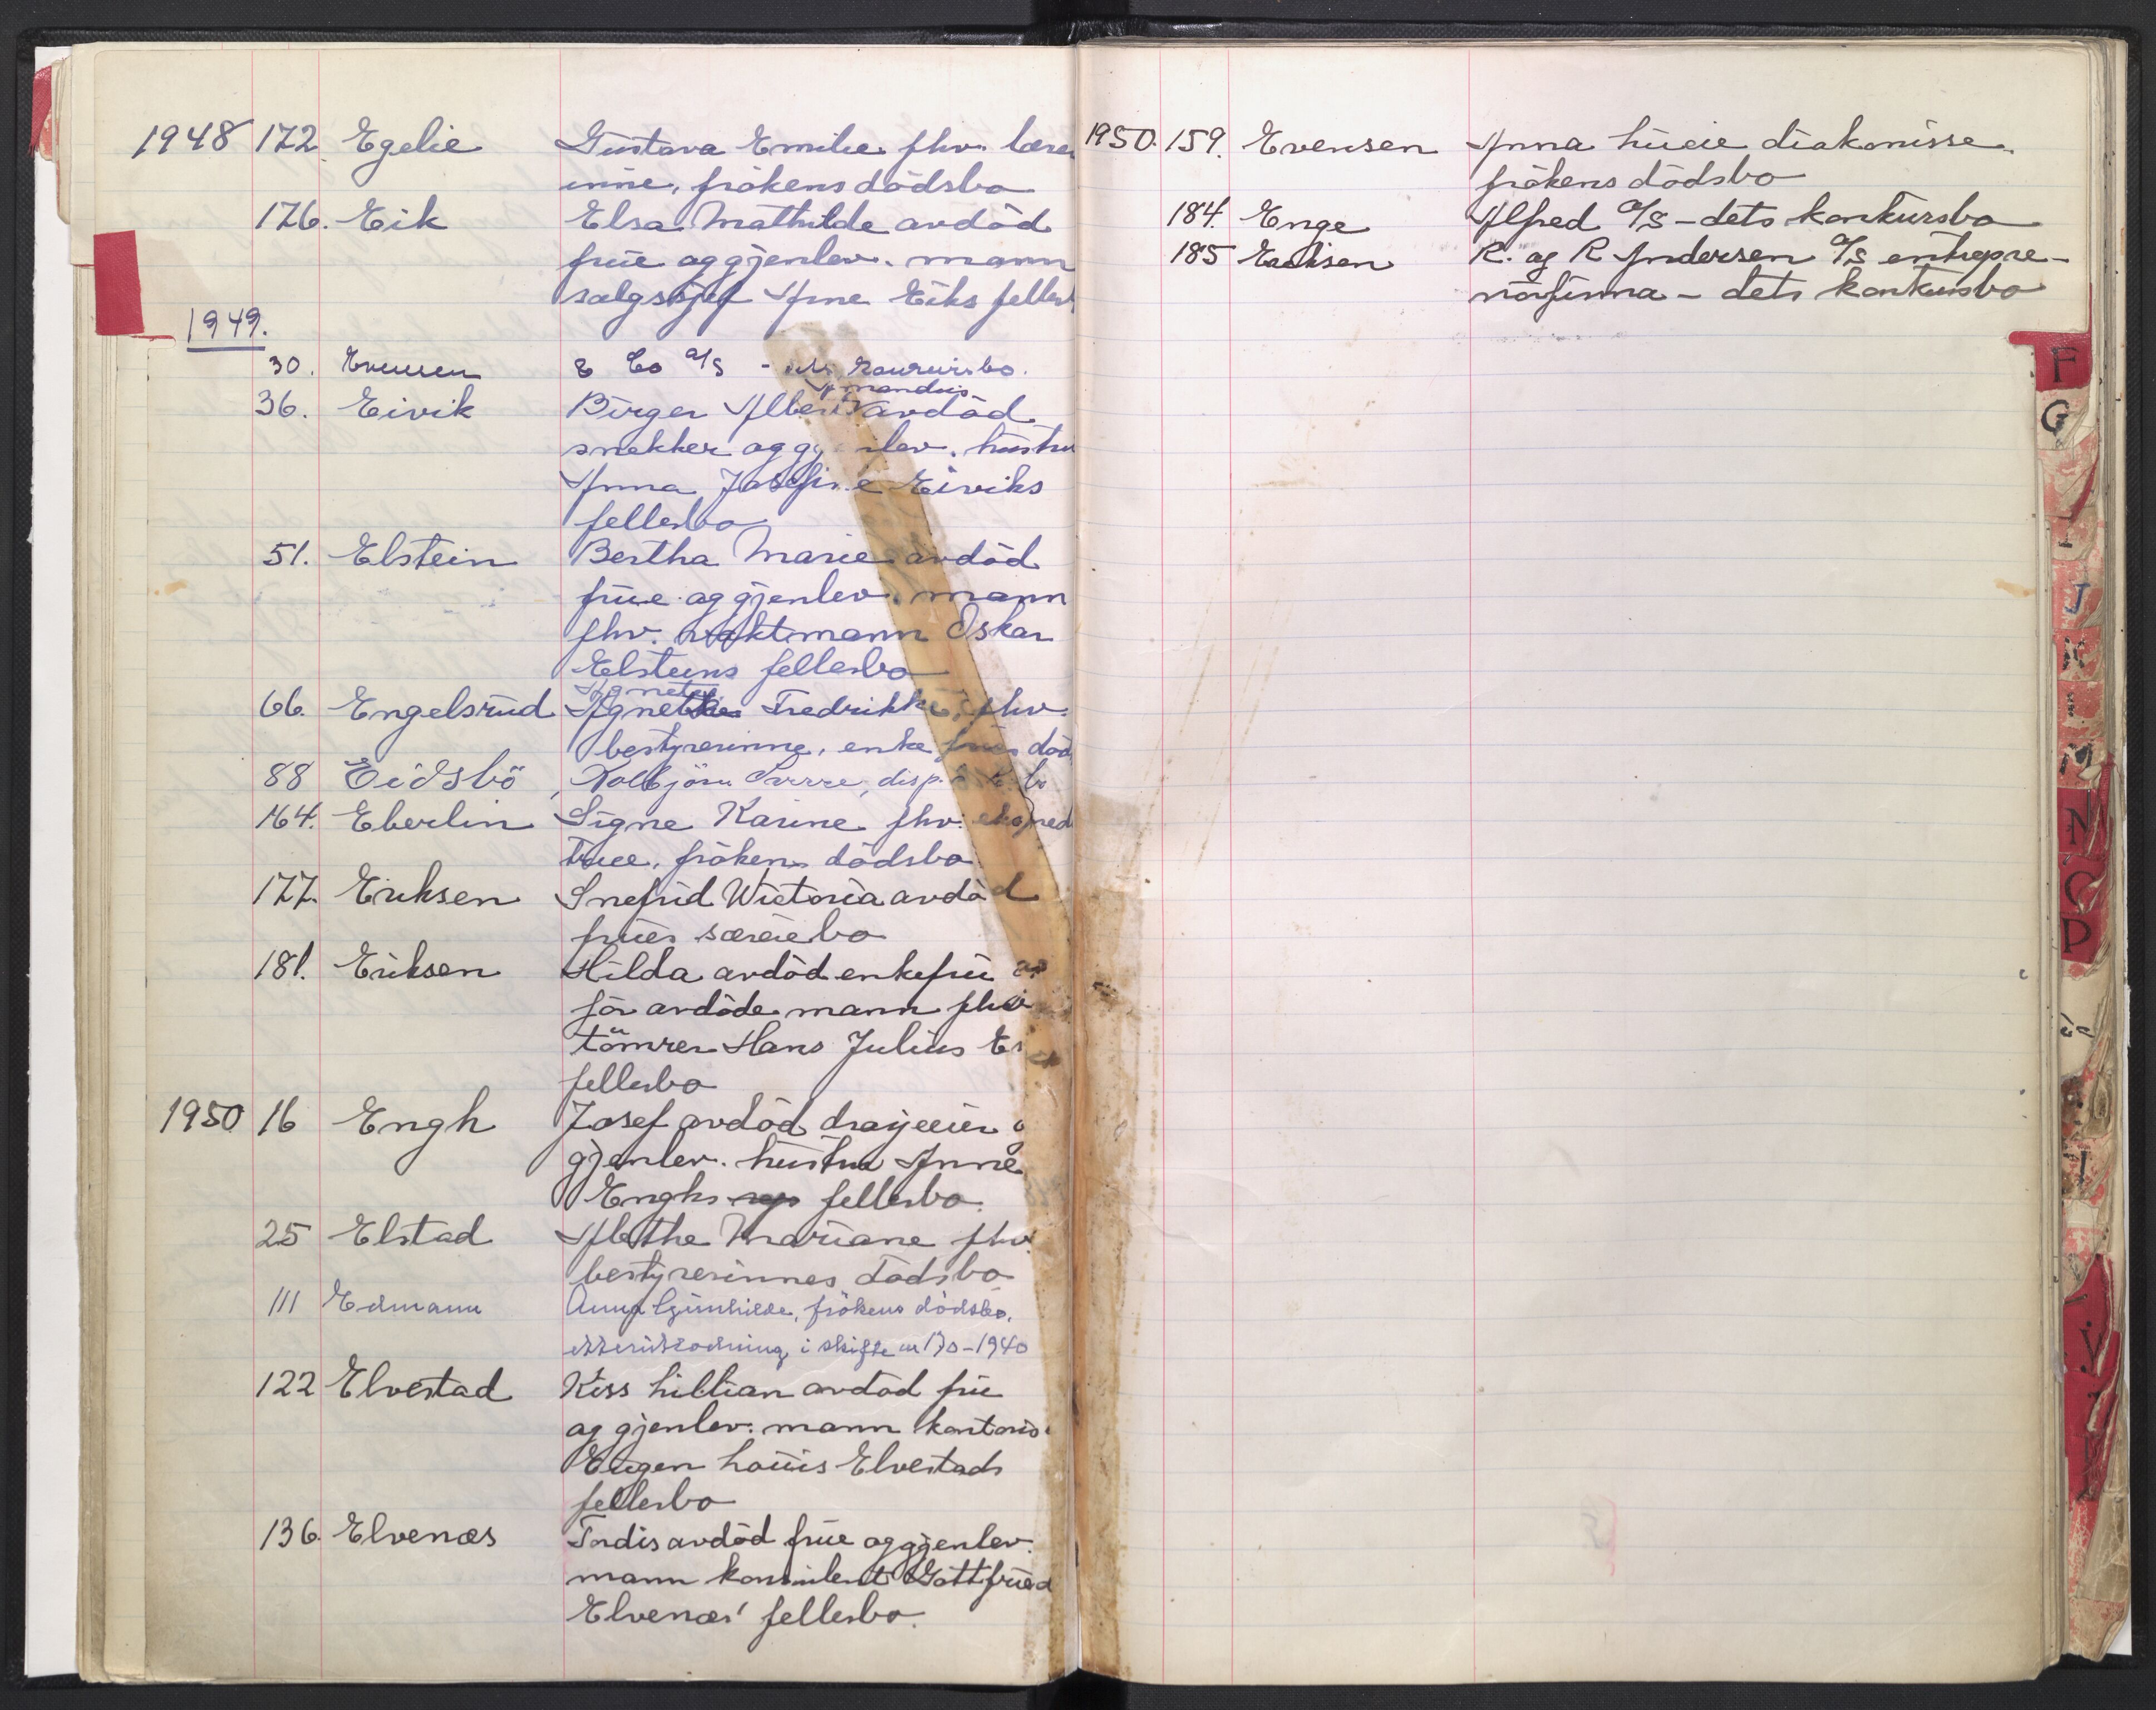 1948 172. Egelie Gustava Emilie fhv. lærer
inne, frökens dödsbo
176. Eik Elsa Mathilde avdöd
frue og gjenlev. mann
salgssjef Arne Eiks fellesb
1949.
30. Evensen & Co A/S - dets konkursbo.
Amandus
36. Eivik Birger Albert avdöd
snekker og gjenlev. hustru
Anna Josefine Eiviks
fellesbo
51. Elstein Bertha Marie avdöd
frue og gjenlev. mann
fhv. vaktmann Oskar
Elsteins fellesbo
Agnete
66. Engelsrud Fredrikke, fhv.
bestyrerinne, enkefrues död
88 Eidsbö, Kolbjörn Sverre, disp. bo
164. Eberlin Signe Karine fhv. eksped
trise, frökens dödsbo
177. Eriksen Snefrid Wictoria avdöd
frues særeiebo
181. Eriksen Hilda avdöd enkefru og
för avdöde mann fhv
tömrer Hans Julius Er
fellesbo
1950 16 Engh Josef avdöd drosjeeier o
gjenlev. hustru Anne
Enghs fellesbo.
25 Elstad Alethe Mariane fhv.
bestyrerinnes dödsbo
111 Edmann Anna Gunhilde, frökens dödsbo,
etterutlodning i skifte nr 170-1940
122 Elvestad Kiss Lillian avdöd frue
og gjenlev. mann kontoris
Eugen Louis Elvestads
fellesbo
136. Elvenæs Tordis avdöd frue og gjenlev.
mann konsulent Gottfried
Elvenæs' fellesbo.
1950. 159. Evensen Anna Lucie diakonisse.
frökens dödsbo
184. Enge Alfred A/S - dets konkursbo
185 Eriksen R. og R Andersen A/S entrepre-
nörfirma - dets konkursbo
F
G
I
J
K
M
N
O
P
V